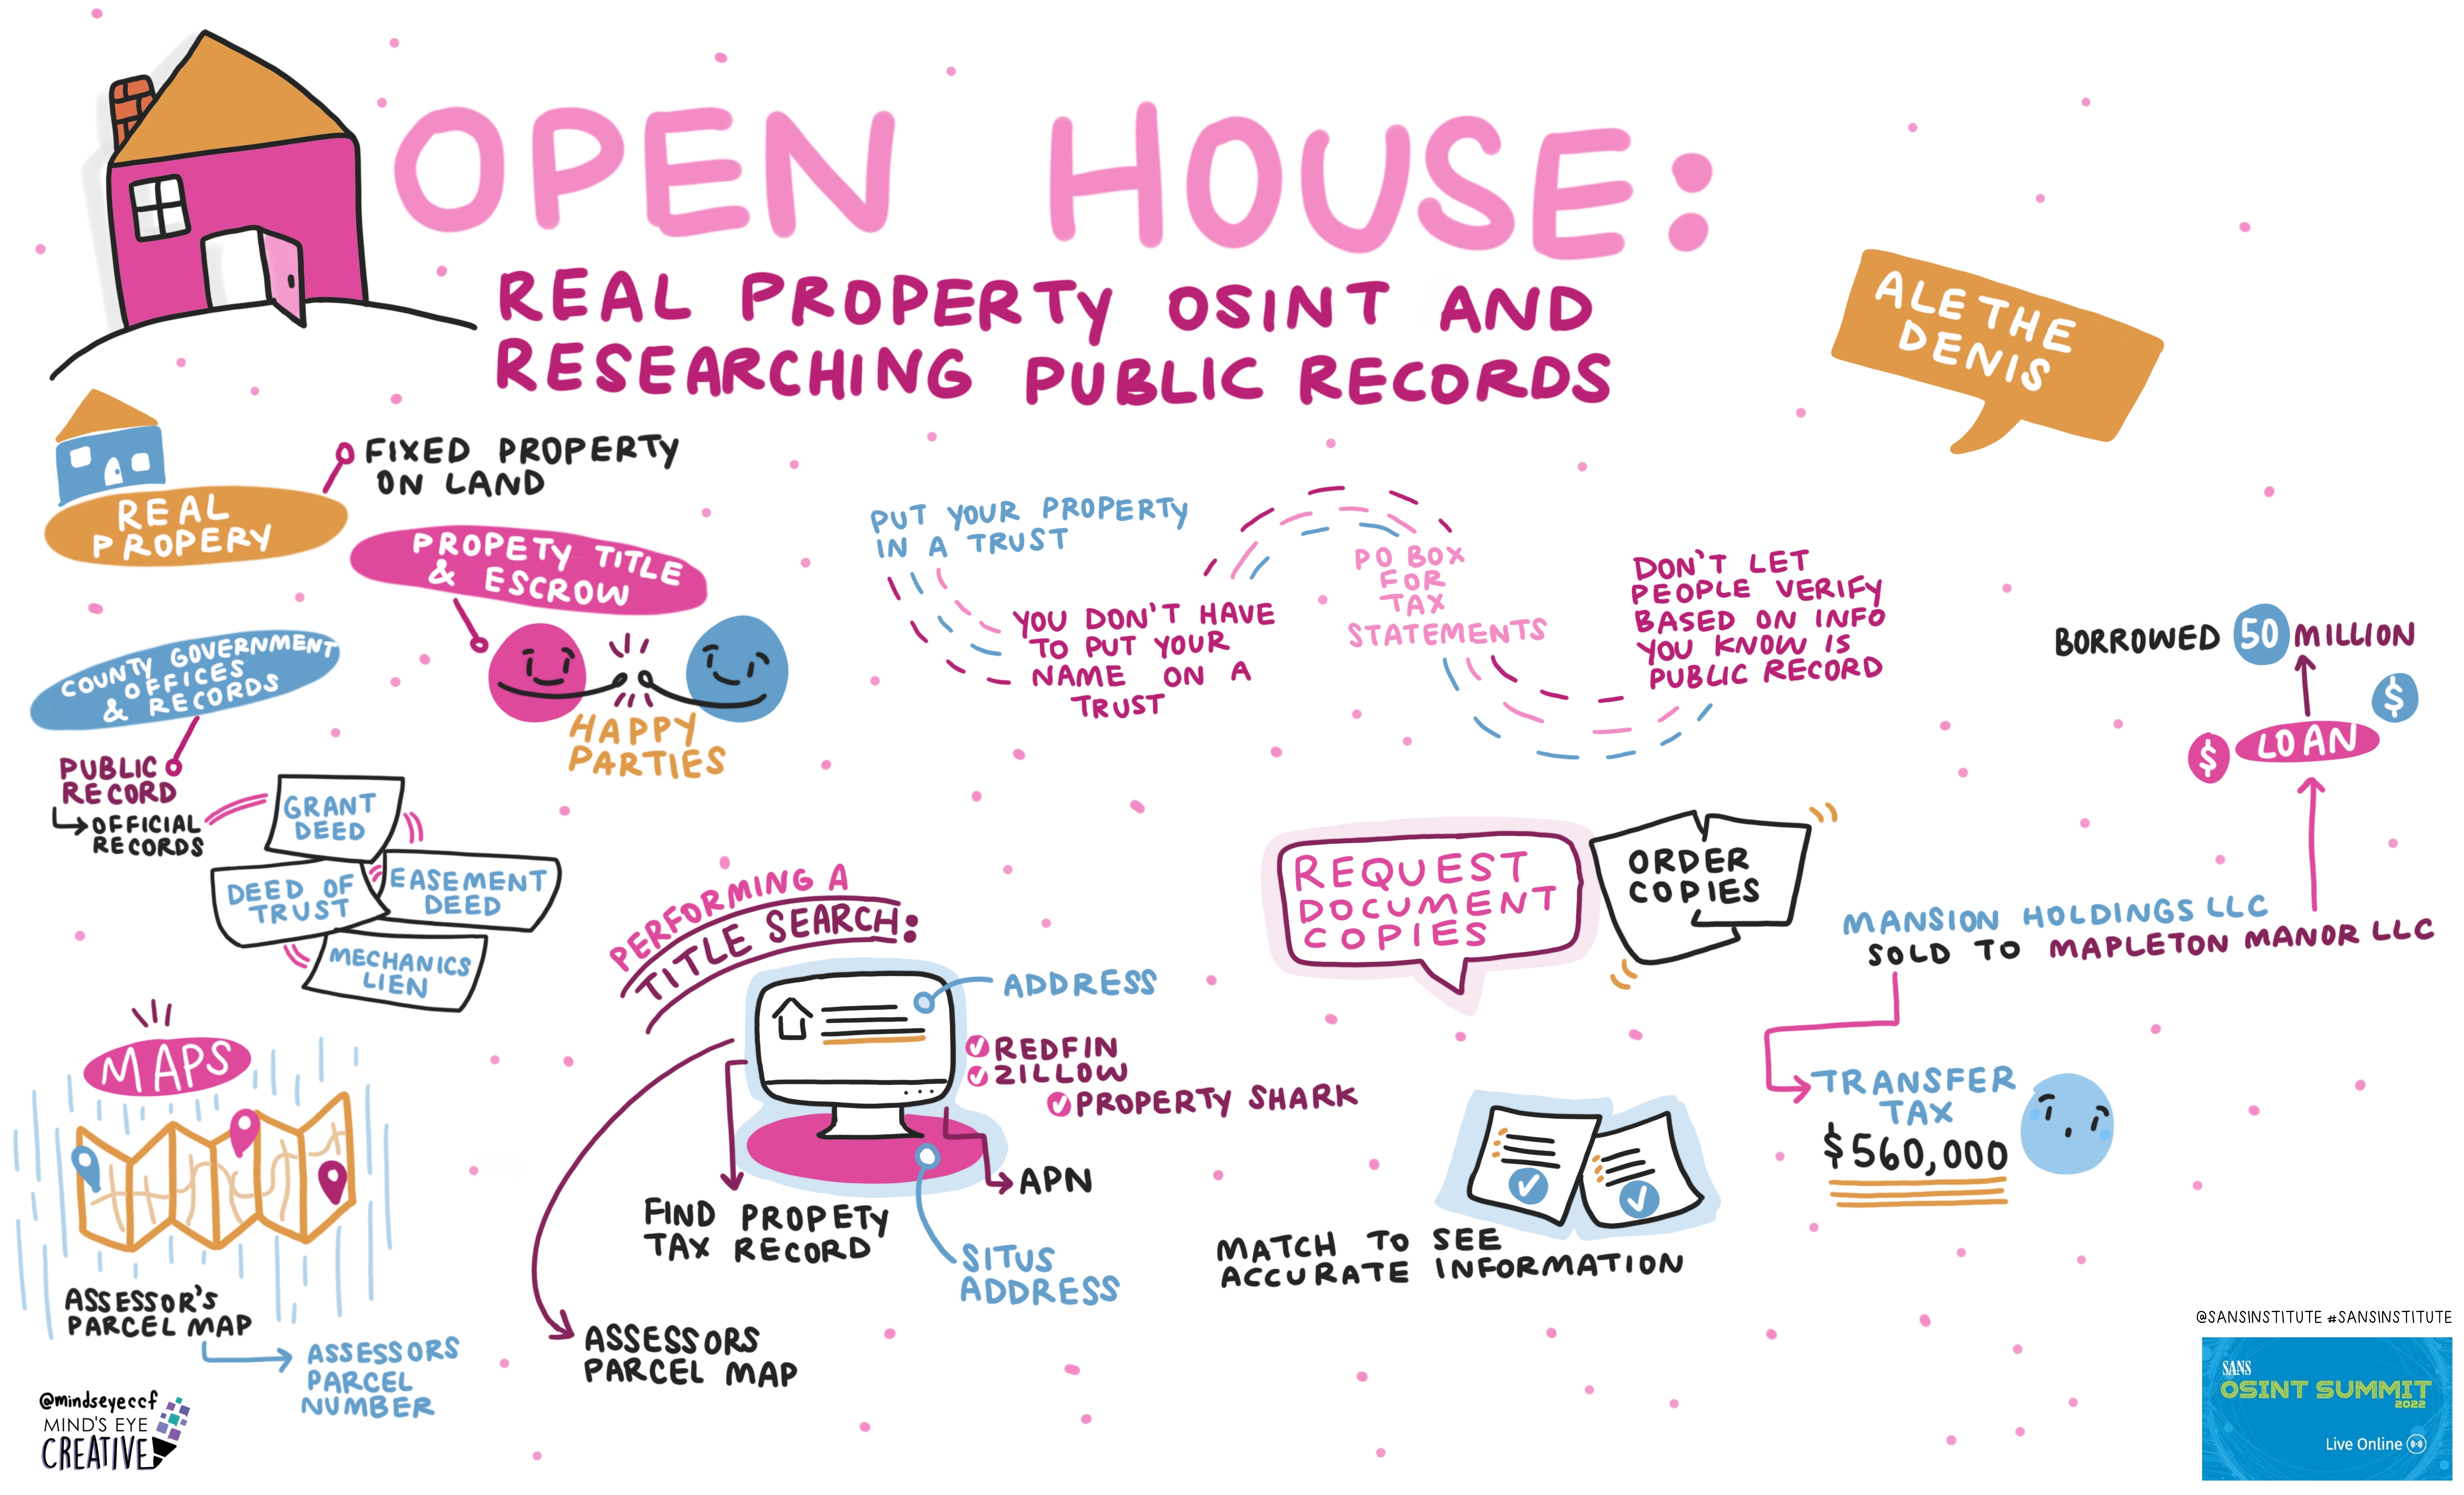 OPEN HOUSE:
REAL PROPERTY OSINT AND
RESEARCHING PUBLIC RECORDS
ALETHE
DENIS
FIXED PROPERTY
ON LAND
REAL
PROPERY
PROPETY TITLE
& ESCROW
HAPPY
PARTIES
COUNTY GOVERNMENT
OFFICES
& RECORDS
PUBLIC
RECORD
OFFICIAL
RECORDS
GRANT
DEED
DEED OF
TRUST
EASEMENT
DEED
MECHANICS
LIEN
MAPS
ASSESSOR'S
PARCEL MAP
ASSESSORS
PARCEL
NUMBER
PUT YOUR PROPERTY
IN A TRUST
YOU DON'T HAVE
TO PUT YOUR
NAME ON A
TRUST
PO BOX
FOR
TAX
STATEMENTS
DON'T LET
PEOPLE VERIFY
BASED ON INFO
YOU KNOW IS
PUBLIC RECORD
PERFORMING A
TITLE SEARCH:
ADDRESS
REDFIN
ZILLOW
PROPERTY SHARK
APN
SITUS
ADDRESS
FIND PROPETY
TAX RECORD
ASSESSORS
PARCEL MAP
REQUEST
DOCUMENT
COPIES
ORDER
COPIES
MATCH TO SEE
ACCURATE INFORMATION
BORROWED 50 MILLION
$
$
LOAN
MANSION HOLDINGS LLC
SOLD TO MAPLETON MANOR LLC
TRANSFER
TAX
$560,000
@mindseyeccf
MIND'S EYE
CREATIVE
@SANSINSTITUTE #SANSINSTITUTE
SANS
OSINT SUMMIT
2022
Live Online